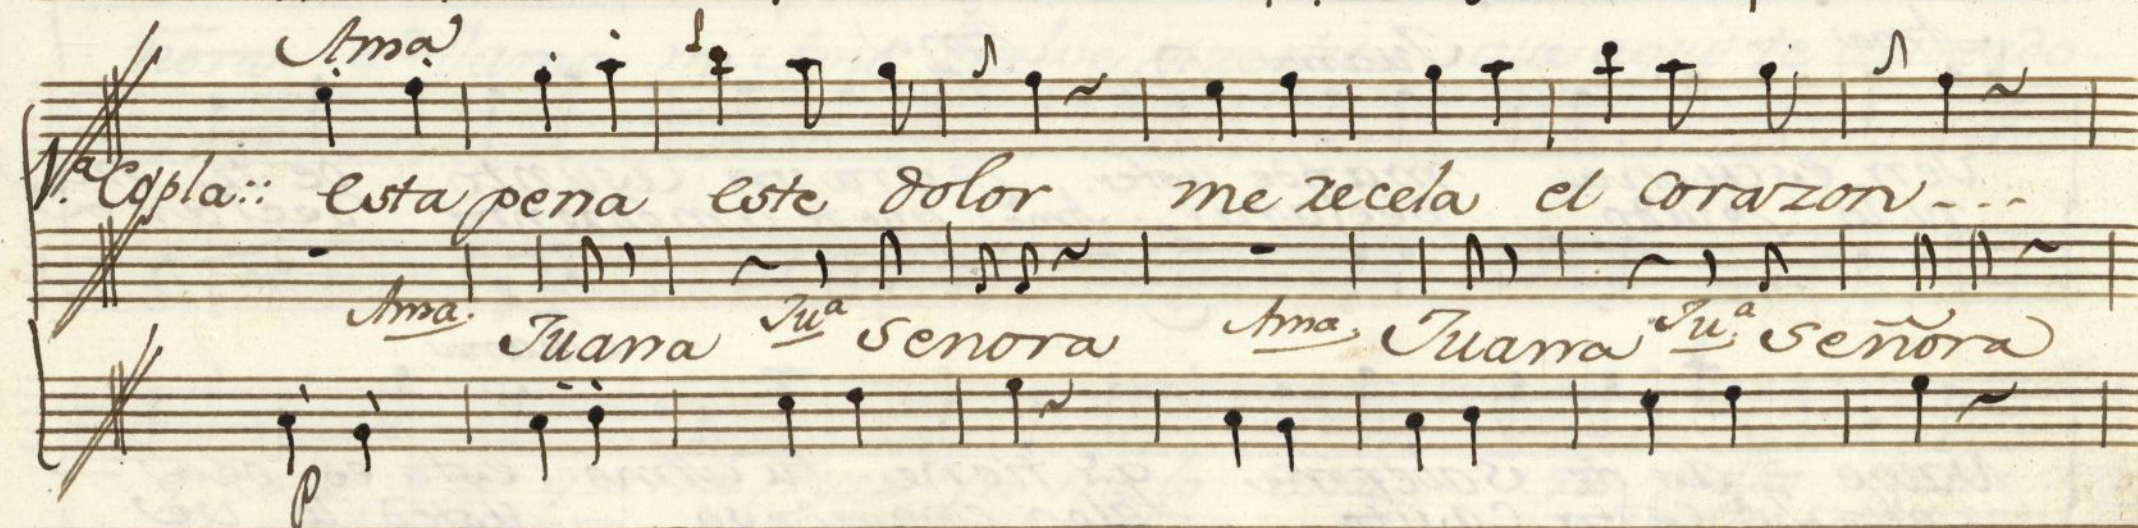 Ama
1ª Copla:: esta pena este dolor me recela el corazon - - - -
Ama. Juana Juª senora Ama. Juana Juª señora
p